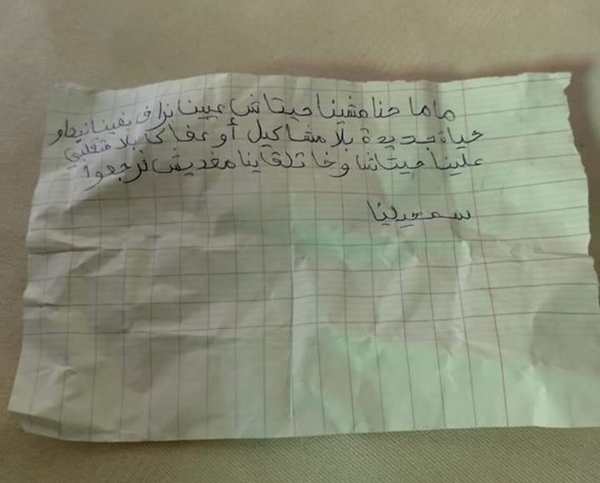 ماما حنا مشينا حيتاش عيينا نزاف بغينا نبداو
حياة جديدة بلا مشاكيل أو عفاك بلا متقلبي
علينا حيتاش وخا تلقاينا مغديش نرجعوا
سمحيلينا